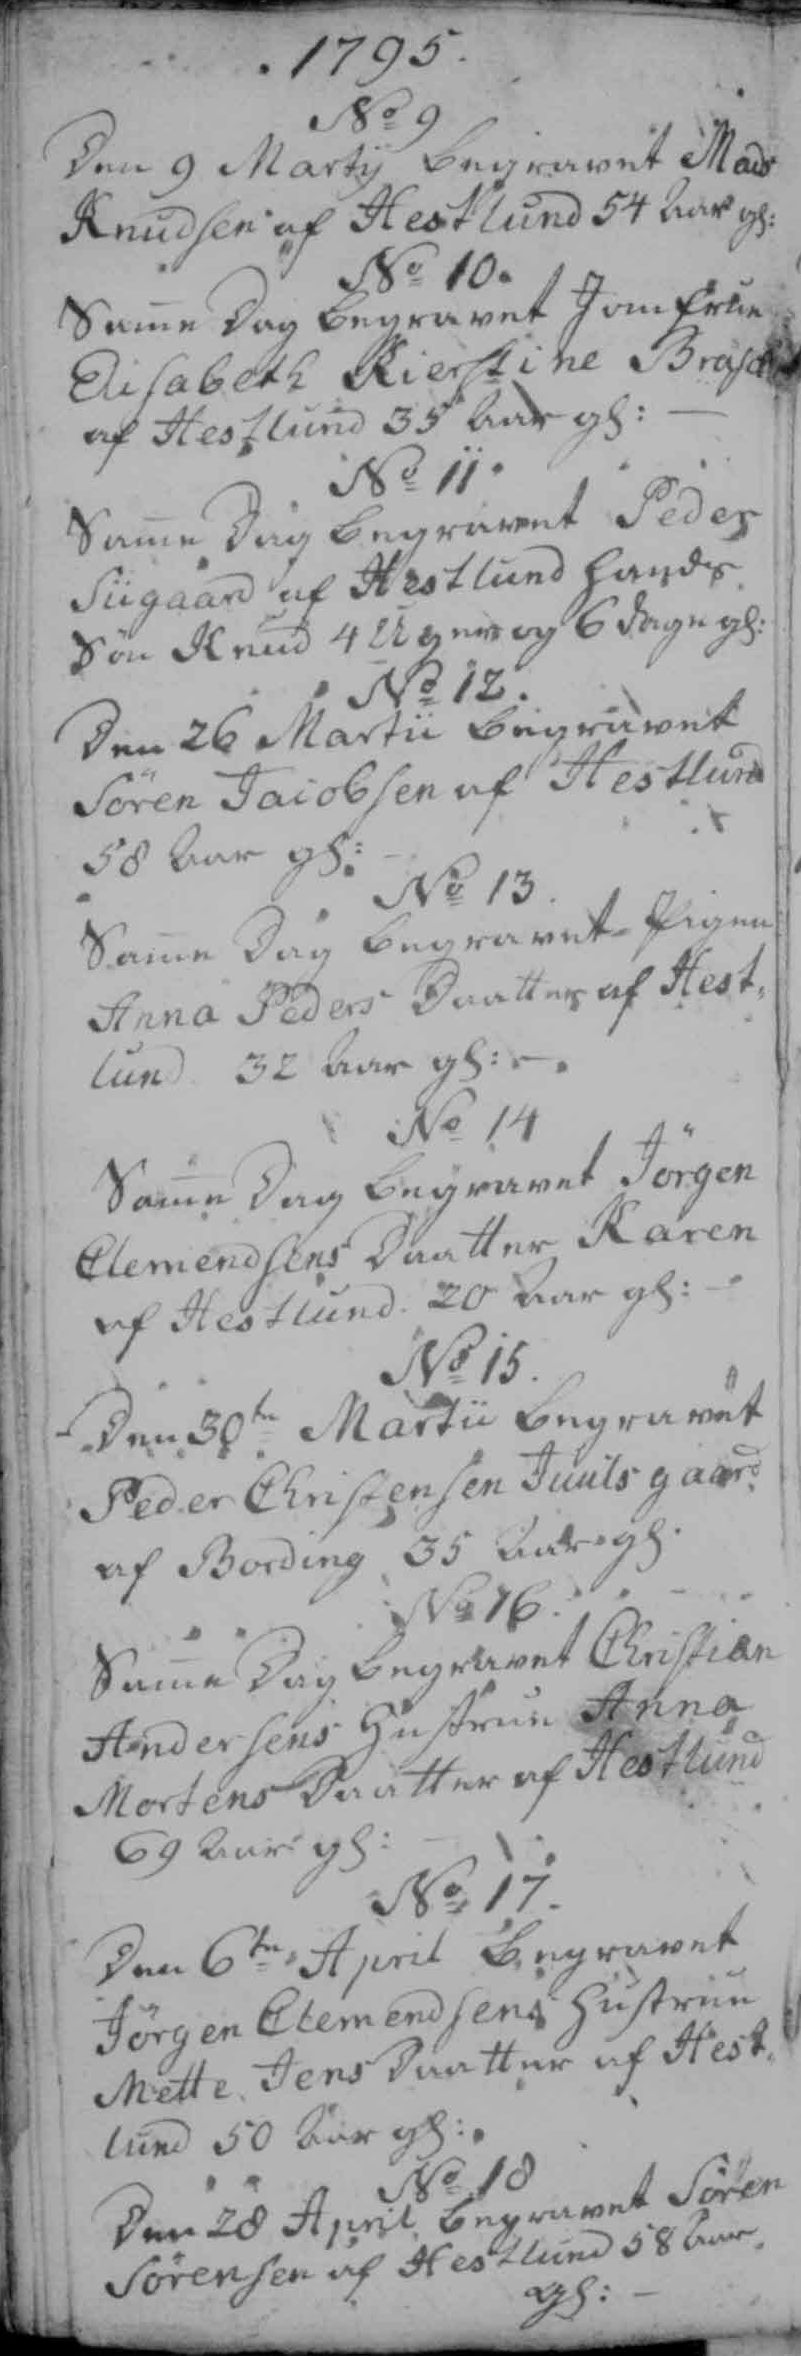 1795.
No 9
Den 9 Martij begravet Mads
Knudsen af Hestlund 54 Aar gl:
No 10.
Samme Dag begravet Jomfrue
Elisabeth Kierstine
af Hestlund 35 Aar gl:
No 11.
Samme Dag begravet Peder
Siigaard af Hestlund hands
Søn Knud 4 Uger og 6 Dage gl:
No 12.
Den 26 Martii begravet
Sören Jacobsen af Hestlund
58 Aar gl:
No 13.
Samme Dag begravet Pigen
Anna Peders Daatter af Hest-
lund 32 Aar gl:
No 14
Samme Dag begravet Jörgen
Clemendsens Daatter Karen
af Hestlund 20 Aar gl:
No 15.
Den 30te Martii begravet
Peder Christensen Juulsgaard
af Bording 35 Aar gl.
No 16.
Samme Dag begravet Christian
Andersens Hustrue Anna
Mortens Daatter af Hestlund
69 Aar gl:
No 17.
Den 6te April begravet
Jörgen Clemendsens Hustrue
Mette Jens Daatter af Hest-
lund 50 Aar gl:
No 18
Den 28 April begravet Sören
Sörensen af Hestlund 58 Aar
gl: